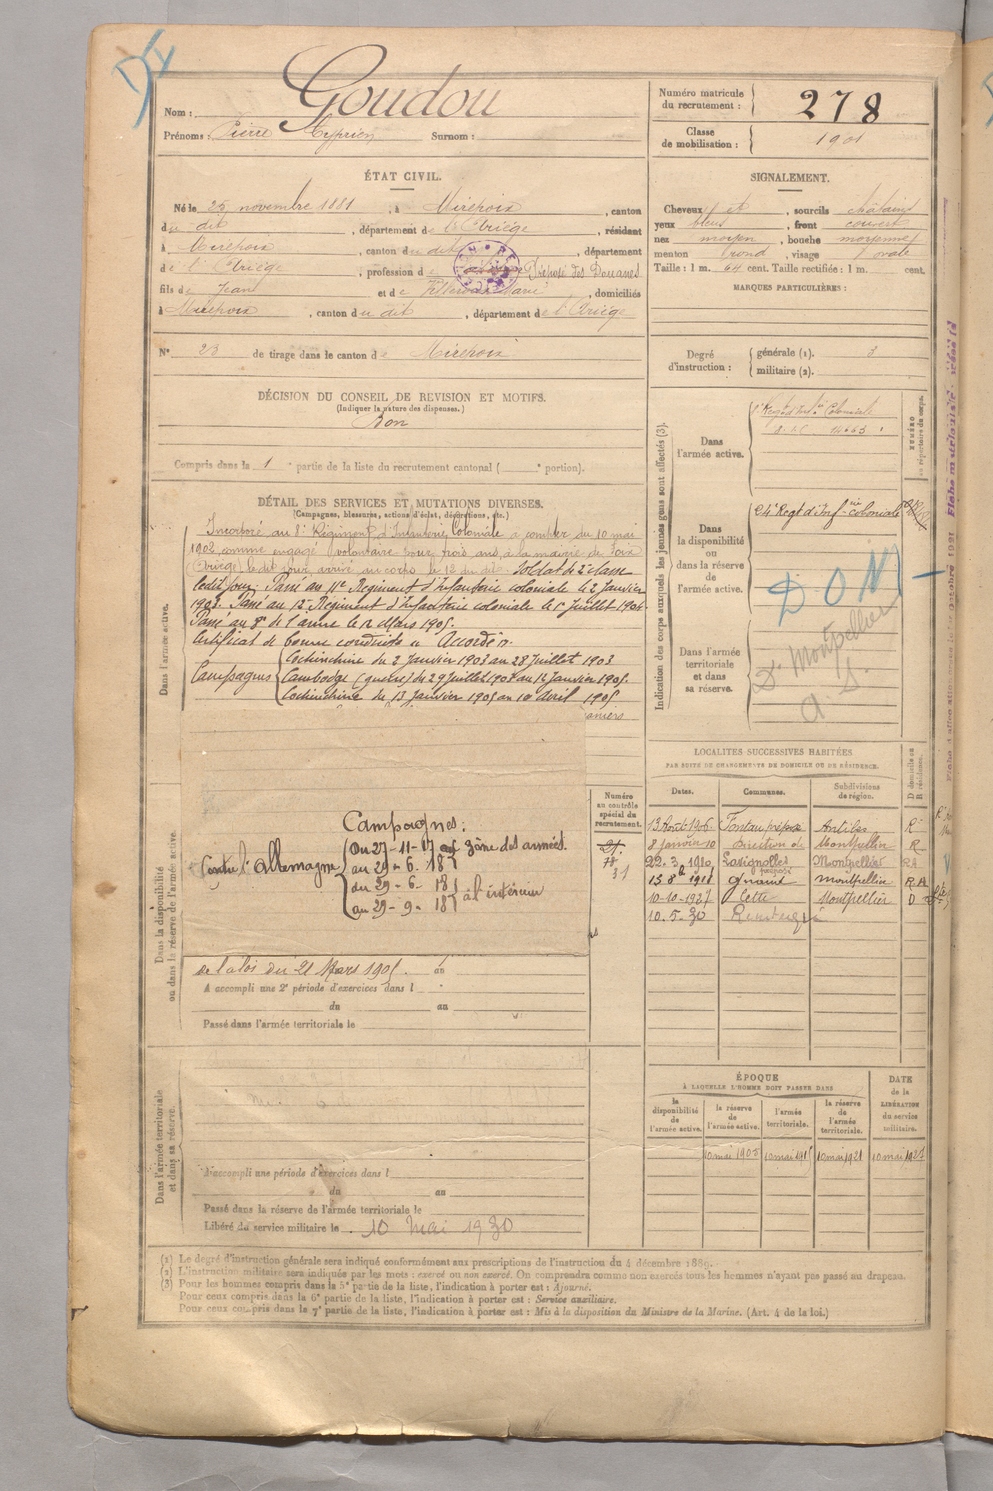 Nom : Goudou
Prénoms : Pierre Cyprien Surnom :
Numéro matricule du recrutement : 278
Classe de mobilisation : 1901
ÉTAT CIVIL.
Né le 25 novembre 1881, à Mirepoix, canton
du dit, département de l'Ariège, résidant
à Mirepoix, canton du dit, département
de l'Ariège, profession de Préposé des Douanes
fils de Jean et de Marie, domiciliés
à Mirepoix, canton du dit, département de l'Ariège
N° 23 de tirage dans le canton de Mirepoix
SIGNALEMENT.
Cheveux, sourcils châtains
yeux bleus, front couvert
nez moyen, bouche moyenne
menton rond, visage ovale
Taille : 1 m. 64 cent. Taille rectifiée : 1 m. cent.
MARQUES PARTICULIÈRES :
Degré d'instruction : générale (1). 3
militaire (2).
DÉCISION DU CONSEIL DE REVISION ET MOTIFS.
(Indiquer la nature des dispenses.)
Bon
Compris dans la 1e partie de la liste du recrutement cantonal ( e portion).
DÉTAIL DES SERVICES ET MUTATIONS DIVERSES.
(Campagnes, blessures, actions d'éclat, décorations, etc.)
Dans l'armée active.
Incorporé au 8e Régiment d'Infanterie Coloniale à compter du 10 mai
1902 comme engagé volontaire pour trois ans, à la mairie de Foix
(Ariège) le dit jour, arrivé au corps le 12 du dit. Soldat de 2e classe
ledit jour. Passé au 11e Régiment d'Infanterie coloniale le 2 Janvier
1903. Passé au 12e Régiment d'Infanterie coloniale le 1er Juillet 1904.
Passé au 8e de l'arme le 12 Mars 1905.
Certificat de bonne conduite "Accordé".
Campagnes
Cochinchine du 2 Janvier 1903 au 28 Juillet 1903
Cambodge (guerre) du 29 Juillet 1903 au 12 Janvier 1905.
Cochinchine du 13 Janvier 1905 au 10 Avril 1905
Dans la disponibilité ou dans la réserve de l'armée active.
Campagnes :
Contre l'Allemagne
Du 27-11-17 zône des armées.
au 29-6-18
du 29-6-18 à l'intérieur
au 29-9-18
de la loi du 21 Mars 1905. au
A accompli une 2e période d'exercices dans l
du au
Passé dans l'armée territoriale le
Numéro au contrôle spécial du recrutement.
Dans l'armée territoriale et dans sa réserve.
A accompli une période d'exercices dans l
du au
Passé dans la réserve de l'armée territoriale le
Libéré du service militaire le 10 Mai 1930
Indication des corps auxquels les jeunes gens sont affectés (3).
Dans l'armée active.
NUMÉRO au répertoire du corps.
Dans la disponibilité ou dans la réserve de l'armée active.
24e Regt d'Inf-rie coloniale
Dans l'armée territoriale et dans sa réserve.
D. Montpellier
LOCALITÉS SUCCESSIVES HABITÉES
PAR SUITE DE CHANGEMENTS DE DOMICILE OU DE RÉSIDENCE.
Dates. Communes. Subdivisions de région. D domicile ou R résidence.
13 Août 1906 Antibes R
8 Janvier 10 Direction de Montpellier R
22.3.1910 Montpellier RA
13 8bre 1911 Montpellier RA
10-10-1927 Cette Montpellier D
10.5.30
ÉPOQUE
À LAQUELLE L'HOMME DOIT PASSER DANS
la disponibilité de l'armée active. la réserve de l'armée active. l'armée territoriale. la réserve de l'armée territoriale.
DATE de la LIBÉRATION du service militaire.
10 mai 1905 10 mai 1915 10 mai 1921
(1) Le degré d'instruction générale sera indiqué conformément aux prescriptions de l'instruction du 4 décembre 1889.
(2) L'instruction militaire sera indiquée par les mots : exercé ou non exercé. On comprendra comme non exercés tous les hommes n'ayant pas passé au drapeau.
(3) Pour les hommes compris dans la 5e partie de la liste, l'indication à porter est : Ajourné.
Pour ceux compris dans la 6e partie de la liste, l'indication à porter est : Service auxiliaire.
Pour ceux compris dans la 7e partie de la liste, l'indication à porter est : Mis à la disposition du Ministre de la Marine. (Art. 4 de la loi.)